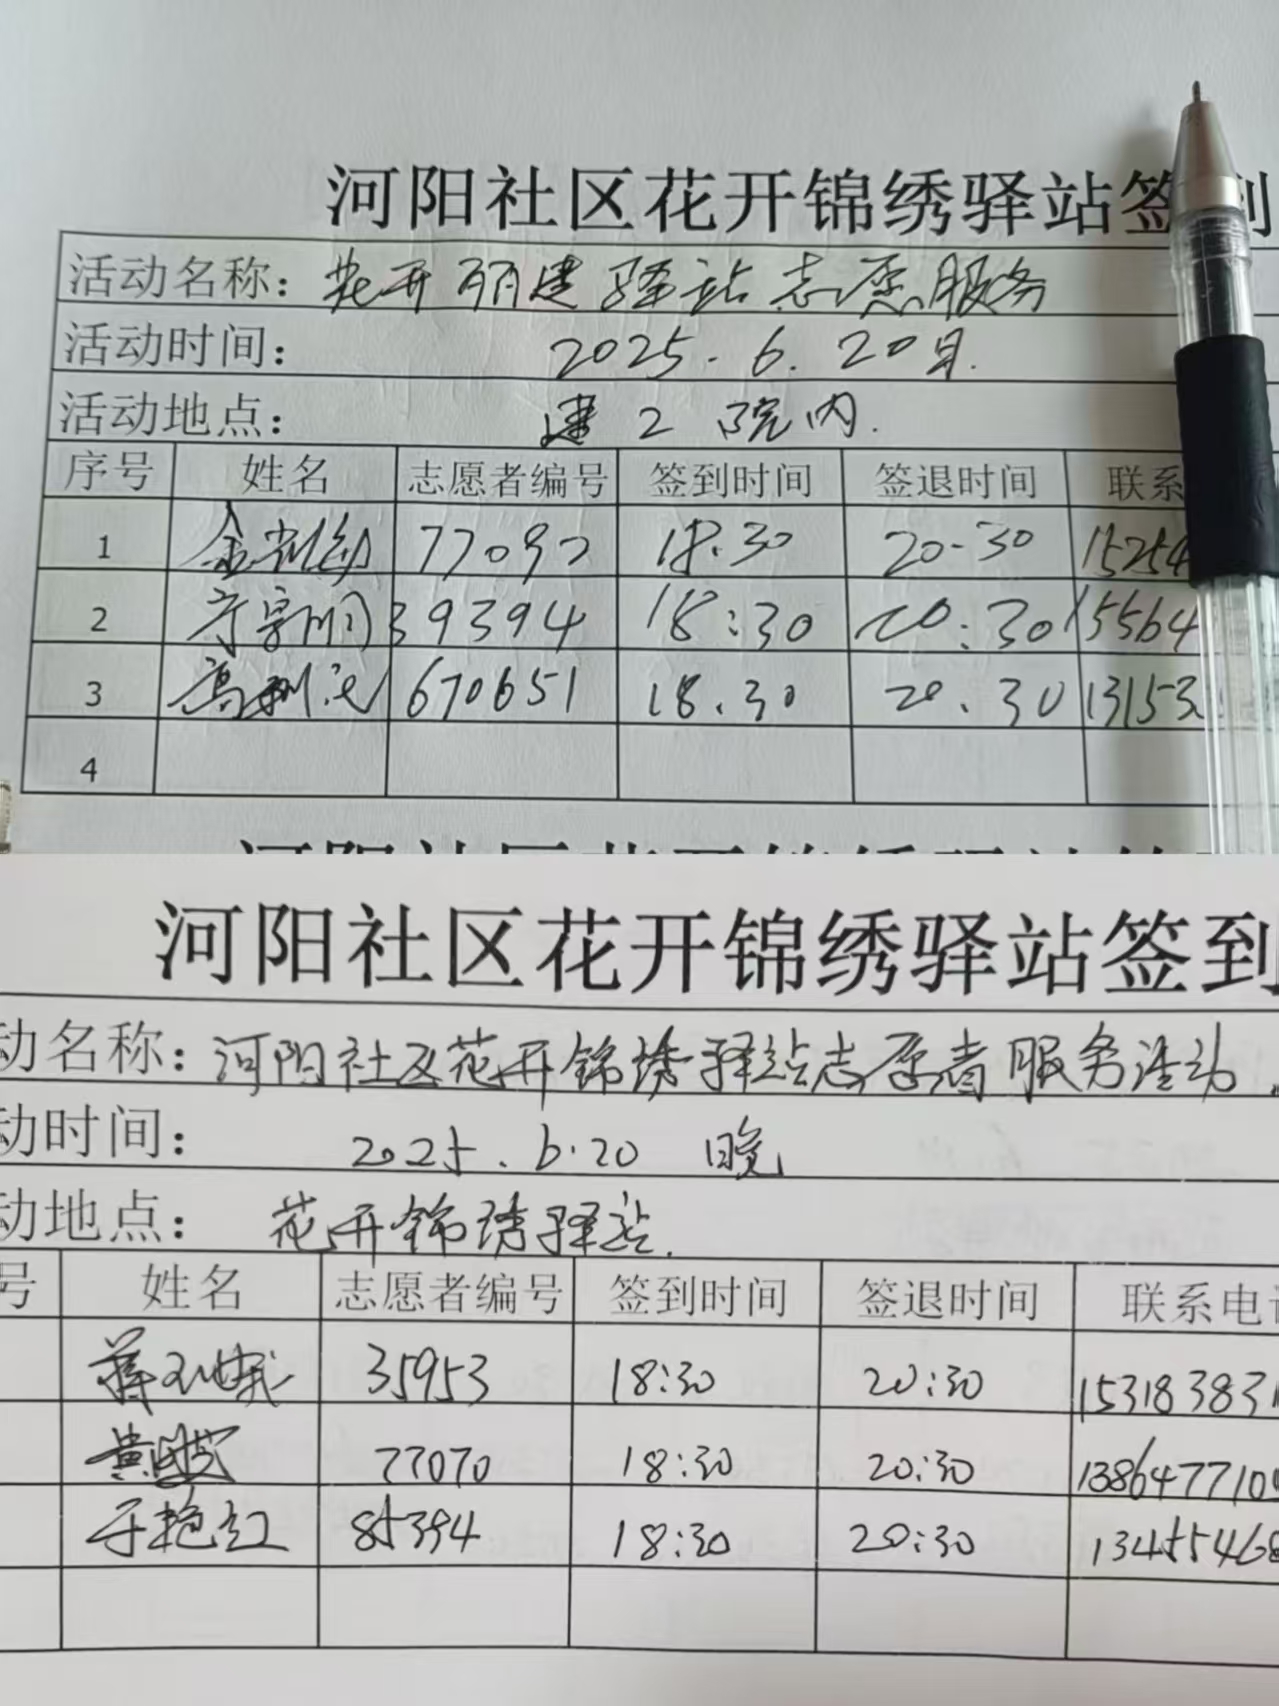 河阳社区花开锦绣驿站签到
活动名称：花开丽建驿站志愿服务
活动时间： 2025.6.20日.
活动地点： 建2院内.
序号 姓名 志愿者编号 签到时间 签退时间 联系
1 77092 18.30 20-30 15254
2 39394 18:30 20:30 15564
3 670651 18.30 20.30 13153
4
河阳社区花开锦绣驿站签到
动名称：河阳社区花开锦绣驿站志愿者服务活动.
动时间： 2025.6.20 日晚
动地点： 花开锦绣驿站.
号 姓名 志愿者编号 签到时间 签退时间 联系电
35953 18:30 20:30 153183831
77070 18:30 20:30 138647710
于艳红 85394 18:30 20:30 13455468